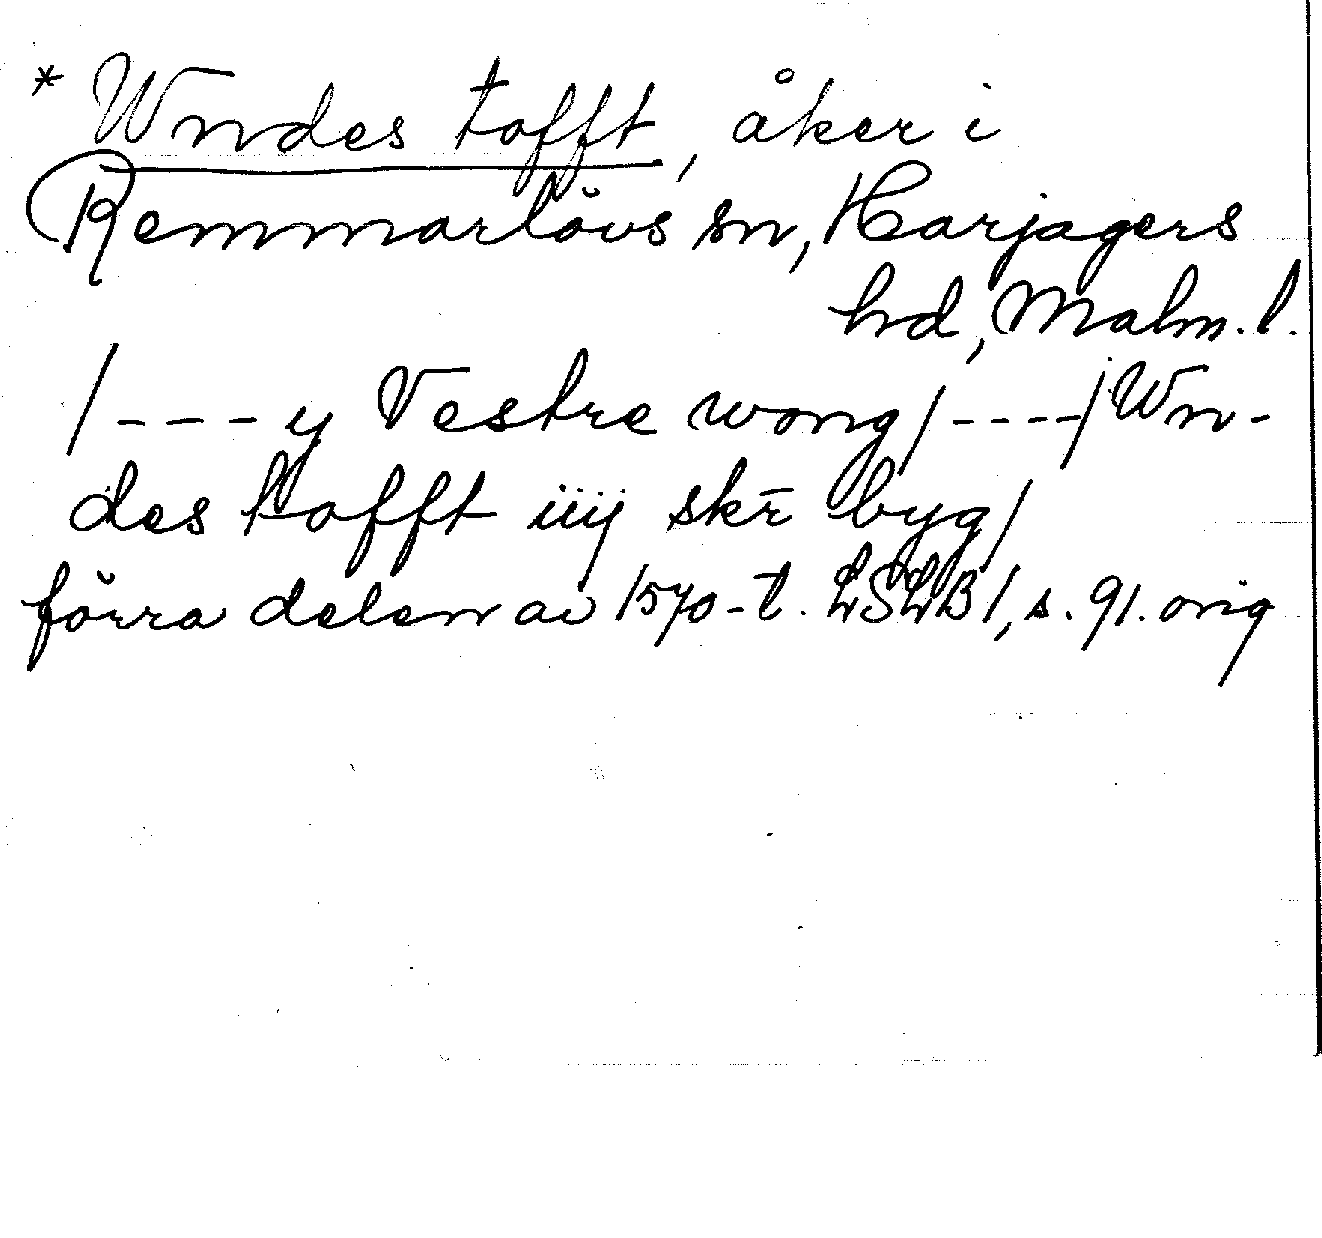 * Wndes tofft, åker i
Remmarlövs sn, Harjagers
hd, Malm. l.
/---y Vestre wong/----/Wn-
des tofft iiij skr̄ byg/
förra delen av 1570-t. LSLB 1, s. 91. orig